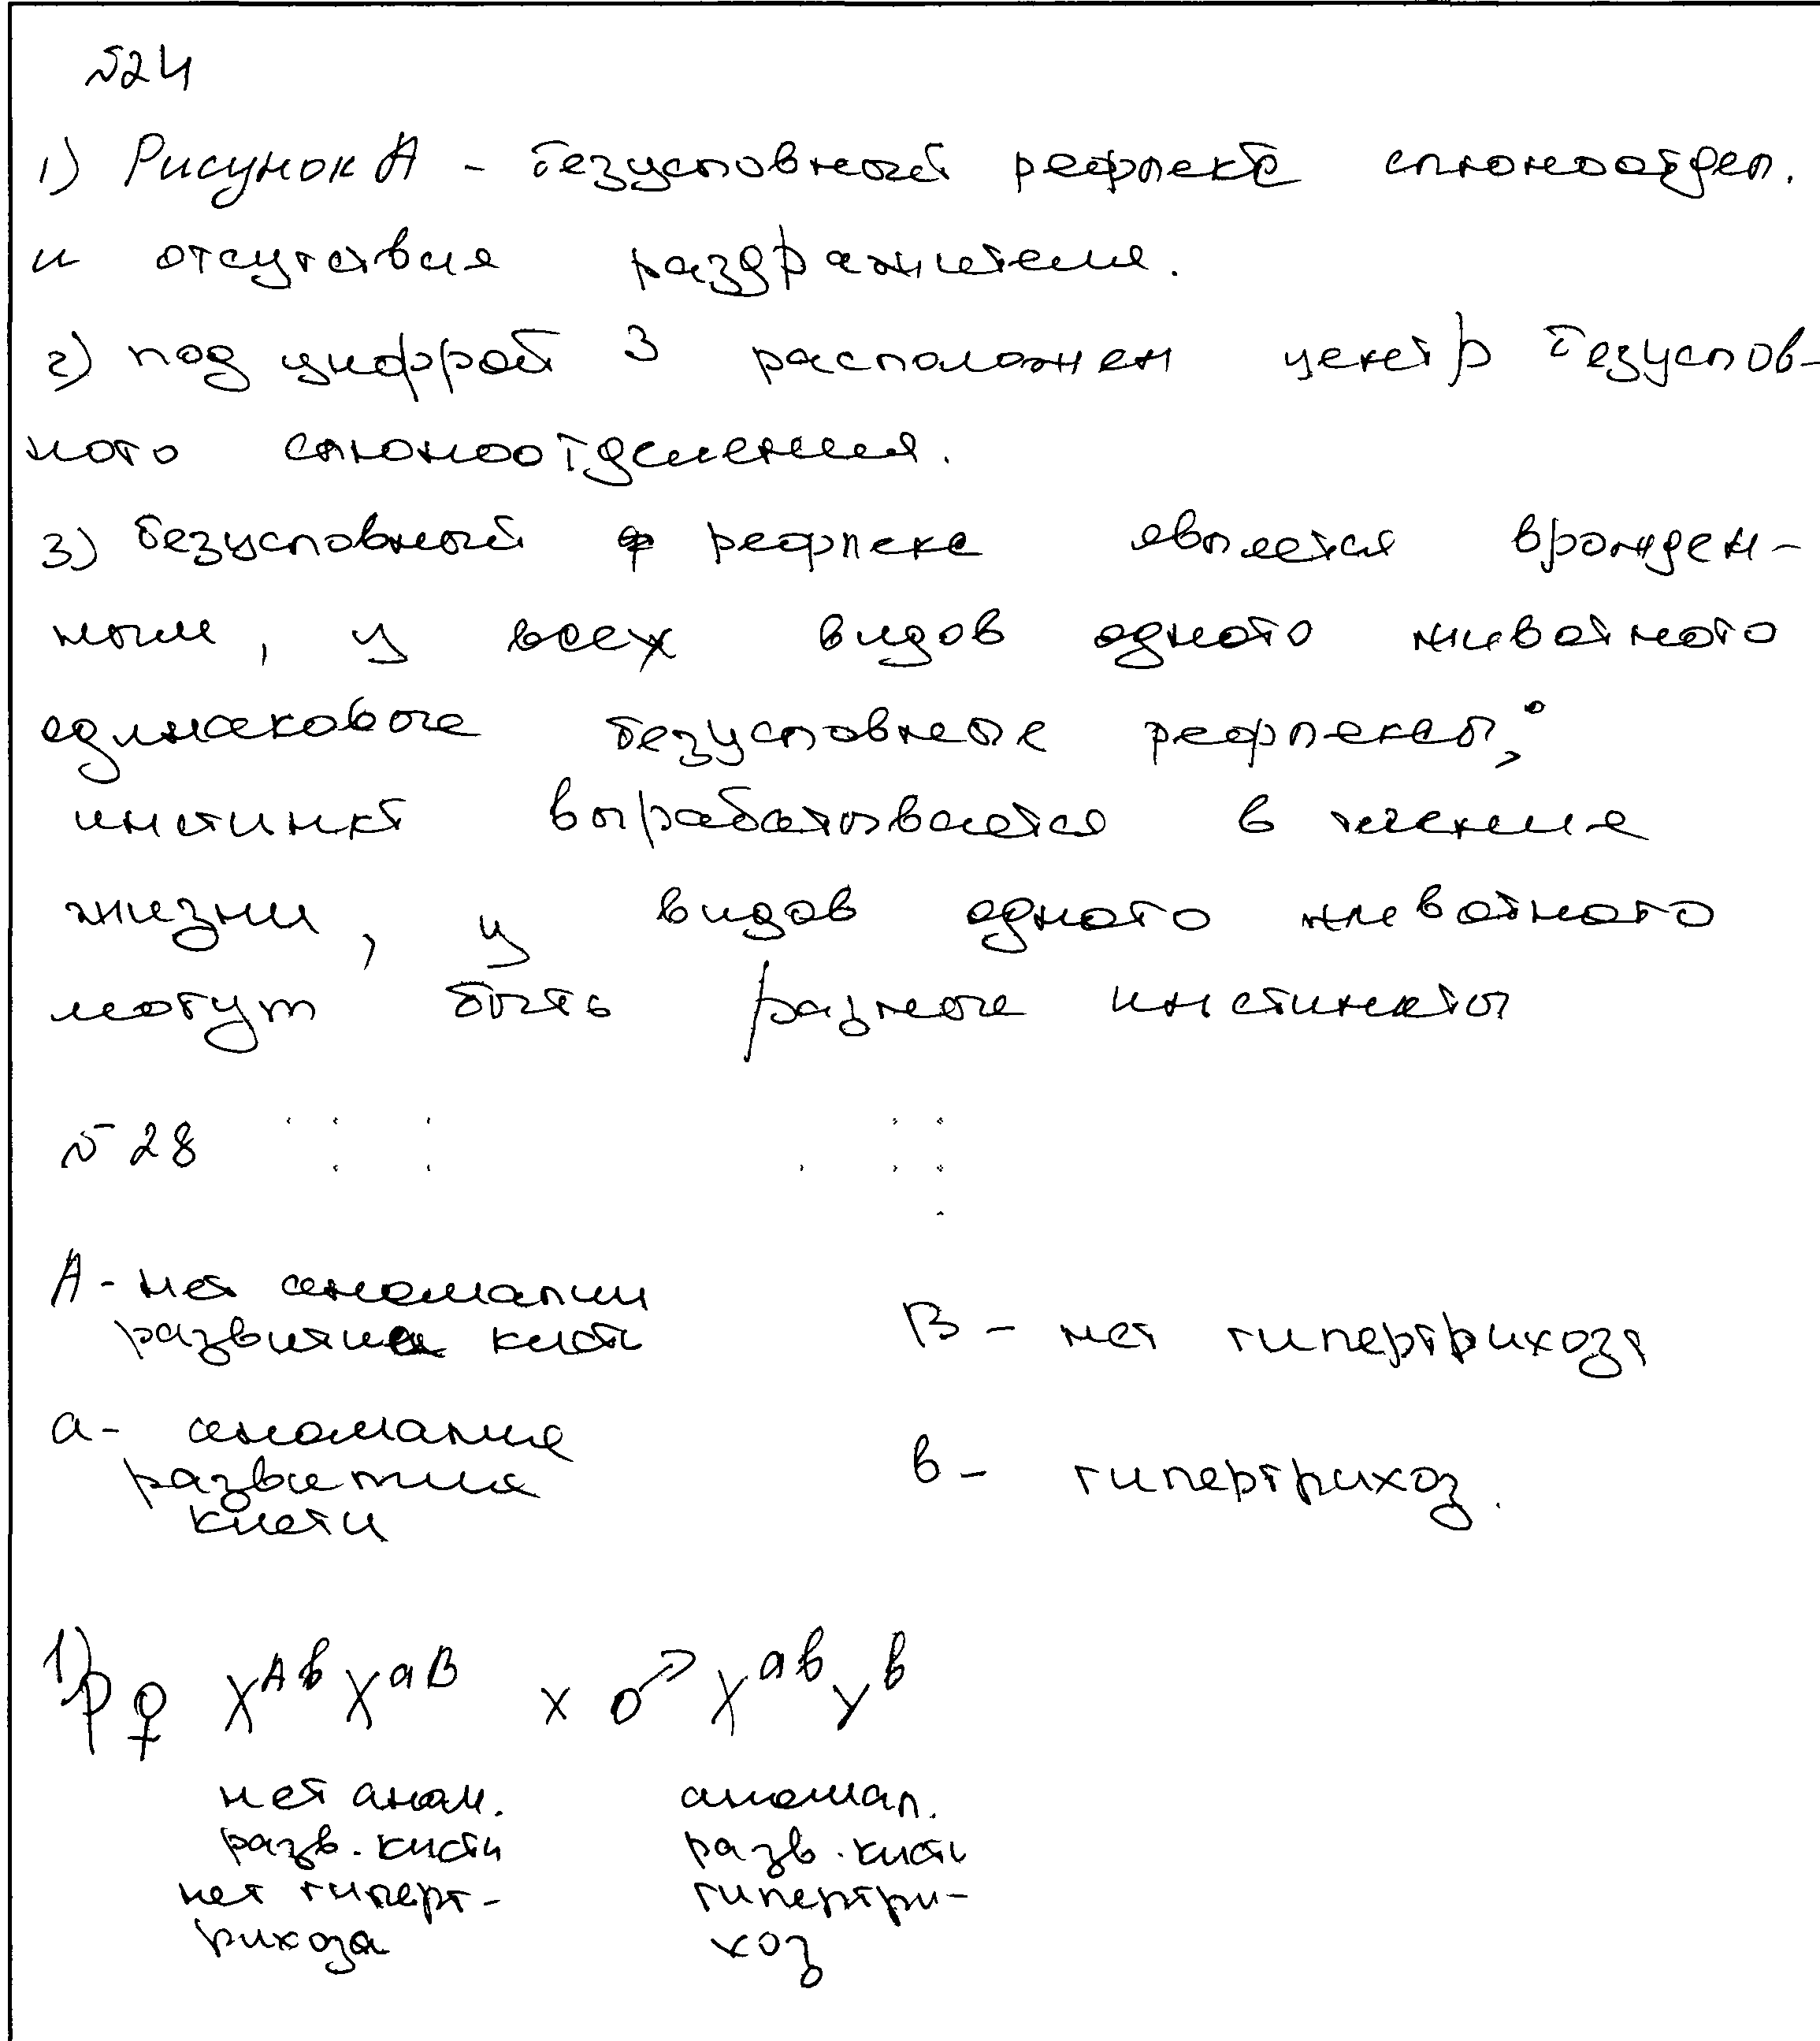 №24
1) Рисунок А - безусловный рефлекс слюноотдел.
и отсутствия раздражителя.
2) под цифрой 3 расположен центр безуслов-
ного слюноотделения.
3) безусловный рефлекс является врожден-
ным, у всех видов одного животного
одинаковые безусловные рефлексы;
инстинкт вырабатывается в течение
жизни, у видов одного животного
могут быть разные инстинкты
№28
А - нет аномалии
развития кисти
В - нет гипертрихоза
а - аномалия
развития
кисти
в - гипертрихоз.
1) P ♀ X^Ав X^аВ x ♂ X^ав Y^в
нет аном. аномал.
разв. кисти разв. кисти
нет гиперт- гипертри-
рихоза хоз